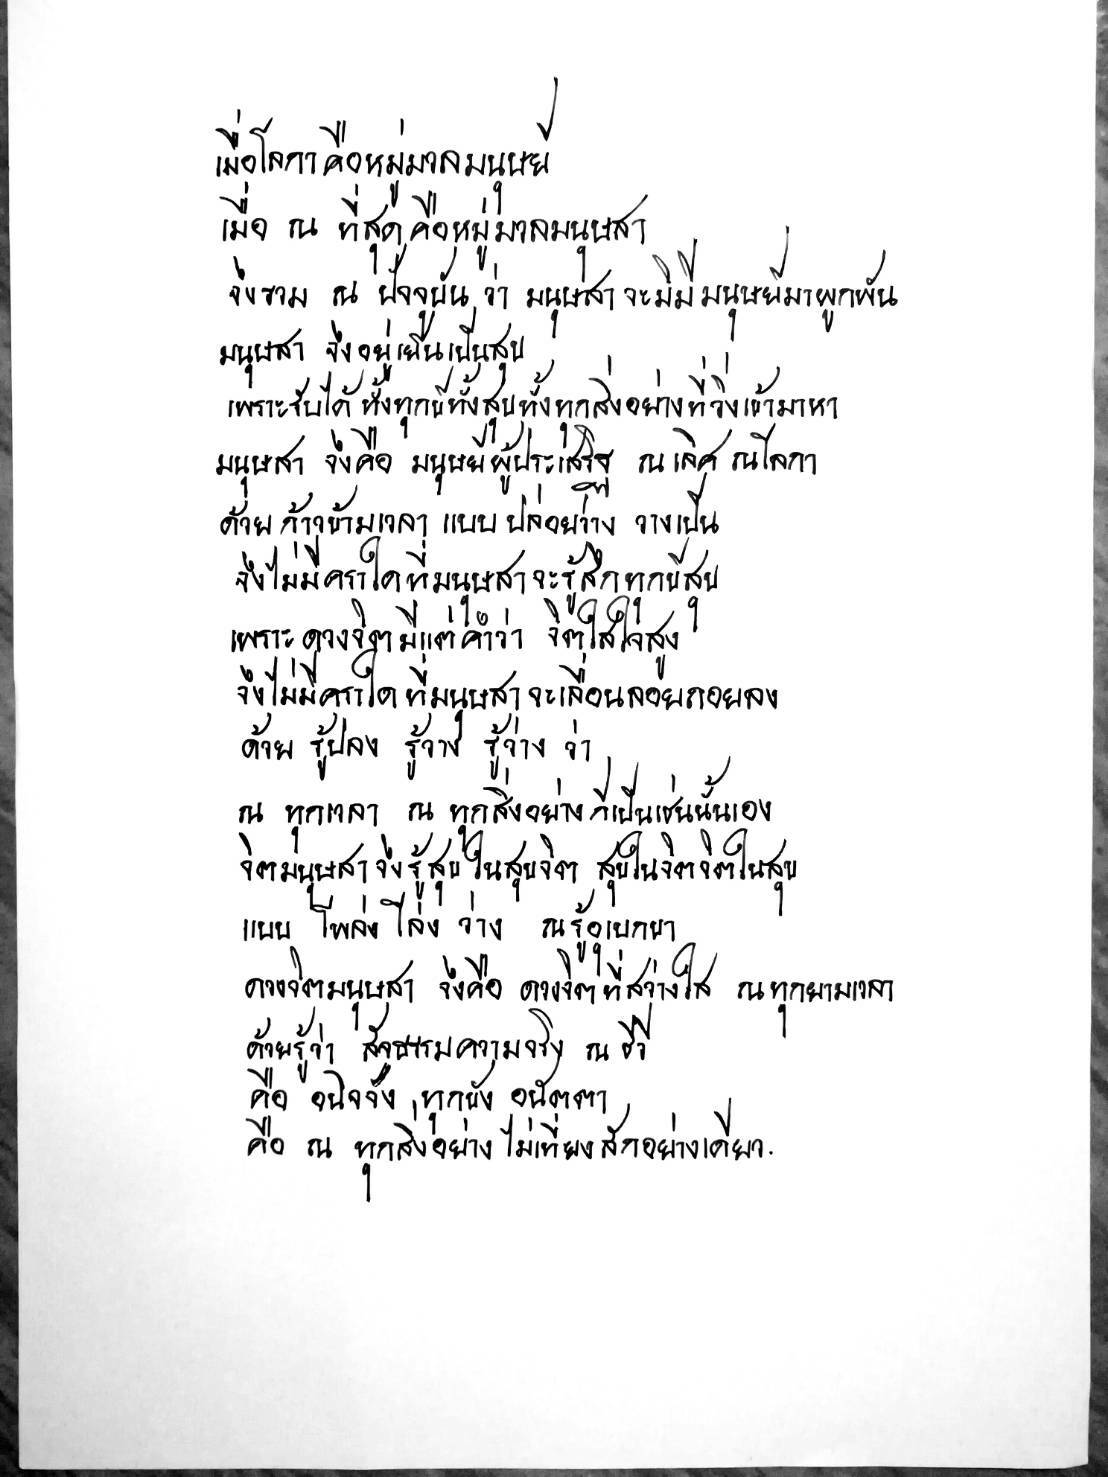 เมื่อโลกาคือหมู่มวลมนุษย์
เมื่อ ณ ที่สุด คือหมู่มวลมนุษสา
จึงรวม ณ ปัจจุบัน ว่า มนุษสาจะมิมีมนุษย์มาผูกพัน
มนุษสา จึงอยู่เย็นเป็นสุข
เพราะจับได้ ทั้งทุกข์ทั้งสุขทั้งทุกสิ่งอย่างที่วิ่งเข้ามาหา
มนุษสา จึงคือ มนุษย์ผู้ประเสริฐ ณ เลิศ ณ โลกา
ด้วย ก้าวข้ามเวลา แบบ ปล่อยว่าง วางเป็น
จึงไม่มีคราใดที่มนุษสาจะรู้สึกทุกข์สุข
เพราะ ดวงจิตมีแต่คำว่า จิตใสใจสูง
จึงไม่มีคราใด ที่มนุษสาจะเลื่อนลอยถอยลง
ด้วย รู้ปลง รู้วาง รู้ว่าง ว่า
ณ ทุกเวลา ณ ทุกสิ่งอย่าง ก็เป็นเช่นนั้นเอง
จิตมนุษสาจึงรู้สุข ในสุขจิต สุขในจิตจิตในสุข
แบบ โพล่ง โล่ง ว่าง ณ รู้อุเบกขา
ดวงจิตมนุษสา จึงคือ ดวงจิตที่สว่างใส ณ ทุกยามเวลา
ด้วยรู้ว่า สัจธรรมความจริง ณ ชีวี
คือ อนิจจัง ทุกขัง อนัตตา
คือ ณ ทุกสิ่งอย่าง ไม่เที่ยงสักอย่างเดียว.